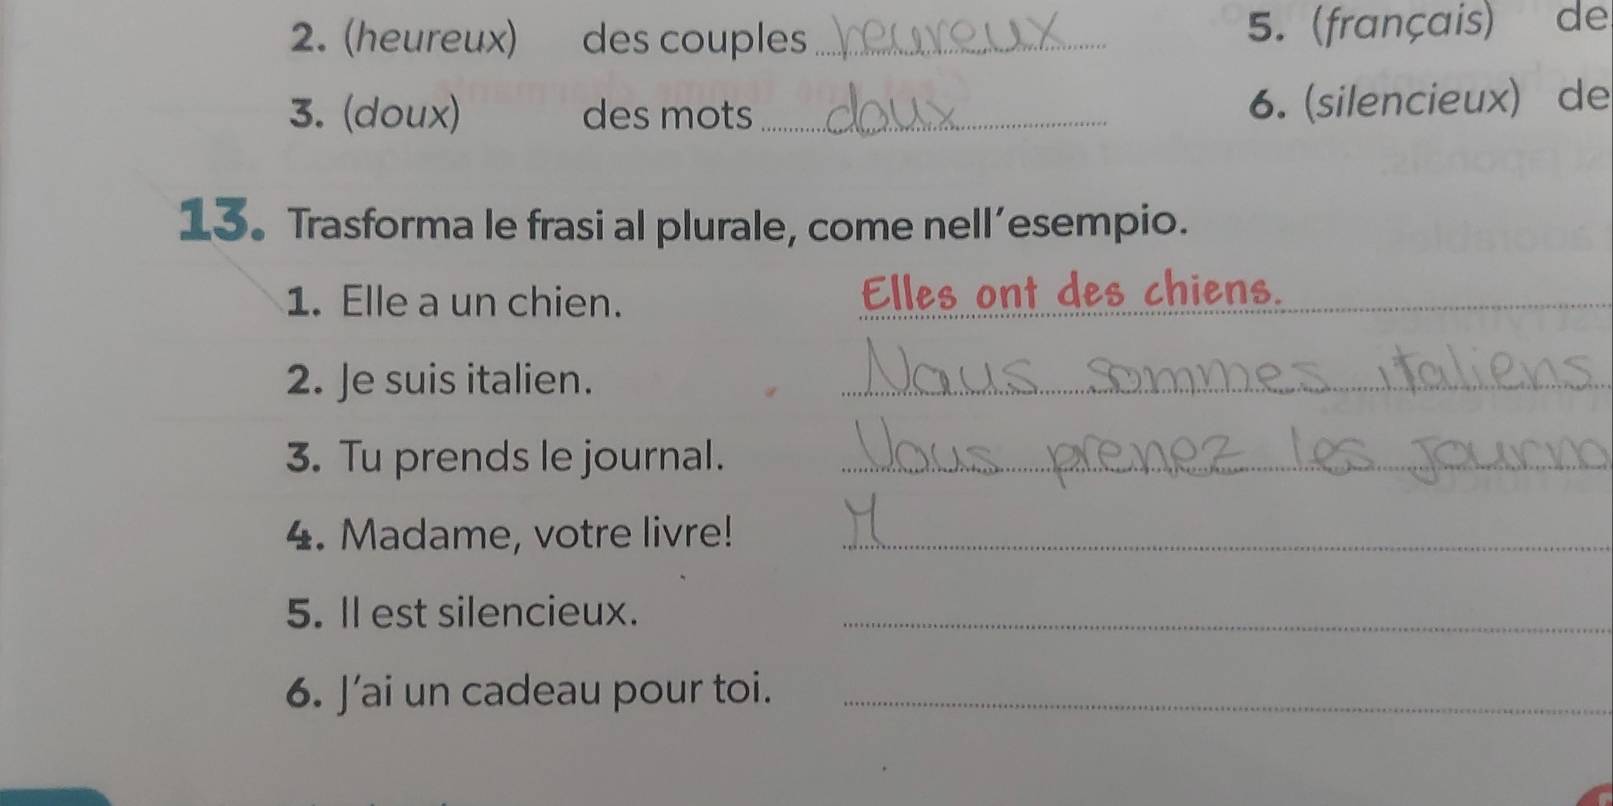 2. (heureux) des couples heureux
5. (français) de
3. (doux) des mots doux
6. (silencieux) de
13. Trasforma le frasi al plurale, come nell'esempio.
1. Elle a un chien. Elles ont des chiens.
2. Je suis italien. Nous sommes italiens
3. Tu prends le journal. Vous prenez les journa
4. Madame, votre livre! M
5. Il est silencieux.
6. J'ai un cadeau pour toi.